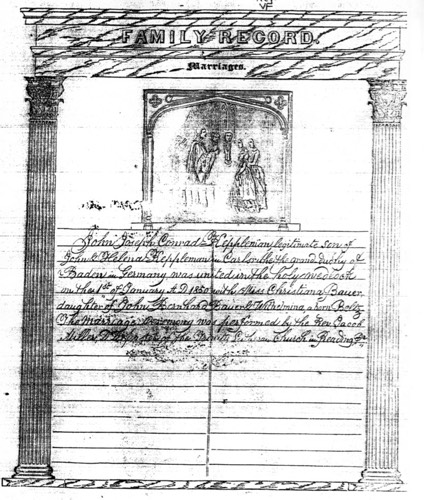 FAMILY RECORD.
Marriages.
John Joseph Conrad Heppleman, legitimate son of
John & Helena Heppleman in Carlsruhe the grand duchy of
Baden in Germany was united in the holy wedlock
on the 1st of January A.D. 1850 with Miss Christiana Bauer,
daughter of John Bernhard Bauer & Wilhelmina, a born Boltz
The marriage ceremony was performed by the Rev. Jacob
Miller D.D. of the Trinity Lutheran Church in Reading Pa.